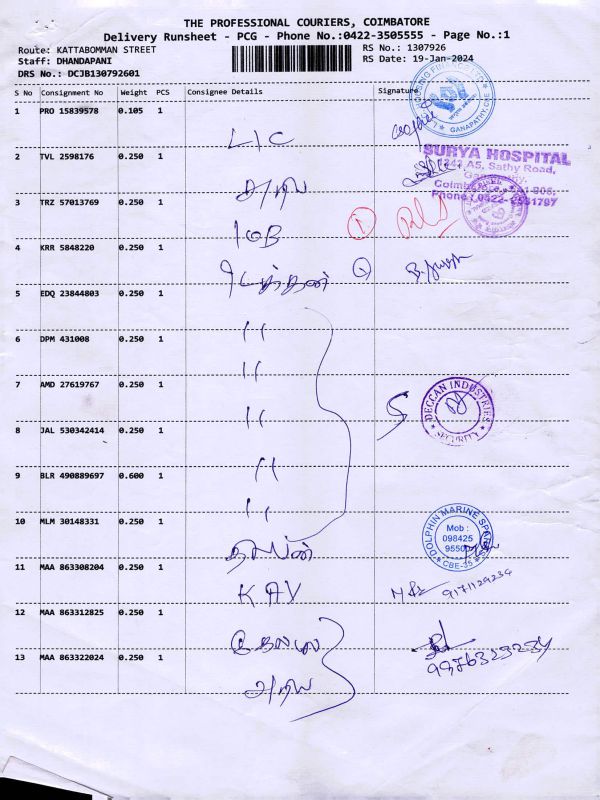 THE PROFESSIONAL COURIERS, COIMBATORE
Delivery Runsheet - PCG - Phone No.:0422-3505555 - Page No.:1
Route: KATTABOMMAN STREET
RS No.: 1307926
Staff: DHANDAPANI
RS Date: 19-Jan-2024
DRS No.: DCJB130792601
S No Consignment No Weight PCS Consignee Details Signature
1 PRO 15839578 0.105 1
LIC
GANAPATHY,CBE
2 TVL 2598176 0.250 1
SURYA HOSPITAL
A5, Sathy Road,
Ganapathy,
3 TRZ 57013769 0.250 1
IOB
4 KRR 5848220 0.250 1
5 EDQ 23844803 0.250 1
"
6 DPM 431008 0.250 1
"
7 AMD 27619767 0.250 1
"
DECCAN INDUSTRIES
SECURITY
8 JAL 530342414 0.250 1
"
9 BLR 490889697 0.600 1
"
10 MLM 30148331 0.250 1
DOLPHIN MARINE
Mob :
098425
CBE-35
11 MAA 863308204 0.250 1
KAV
12 MAA 863312825 0.250 1
13 MAA 863322024 0.250 1